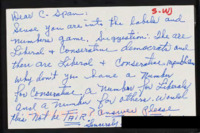 S-WJ
Dear C-Span:
Since you are into the labels and
numbers game, Suggestion: She are
Liberal & Conservative democrats and
there are Liberal & Conservative republicans
why don't you have a Number
for Conservative, a number for Liberals
and a Number for others. Would
this not be FAIR? answer please
Sincerely